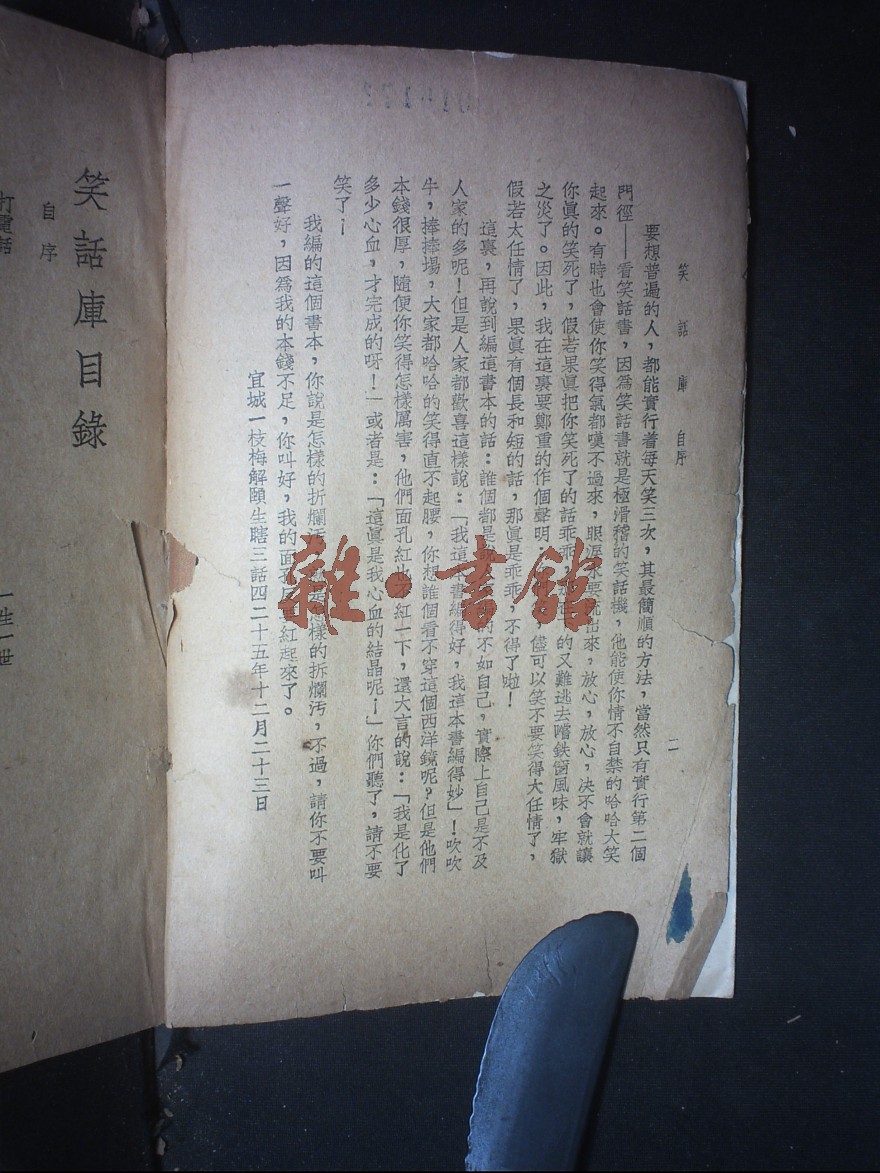 笑話庫 自序
二
要想普遍的人，都能實行着每天笑三次，其最簡順的方法，當然只有實行第二個
門徑——看笑話書，因爲笑話書就是極滑稽的笑話機，他能使你情不自禁的哈哈大笑
起來。有時也會使你笑得氣都嘆不過來，眼淚水要流出來，放心，放心，决不會就讓
你眞的笑死了，假若果眞把你笑死了的話乖乖，的又難逃去嚐鉄窗風味，牢獄
之災了。因此，我在這裏要鄭重的作個聲明，儘可以笑不要笑得大任情了，
假若太任情了，果眞有個長和短的話，那眞是乖乖，不得了啦！
這裏，再說到編這書本的話：誰個都是的不如自己，實際上自己是不及
人家的多呢！但是人家都歡喜這樣說：「我這本書編得好，我這本書編得妙」！吹吹
牛，捧捧場，大家都哈哈的笑得直不起腰，你想誰個看不穿這個西洋鏡呢？但是他們
本錢很厚，隨便你笑得怎樣厲害，他們面孔紅也不紅一下，還大言的說：「我是化了
多少心血，才完成的呀！」或者是：「這眞是我心血的結晶呢！」你們聽了，請不要
笑了！
我編的這個書本，你說是怎樣的折爛汚，怎樣的拆爛汚，不過，請你不要叫
一聲好，因爲我的本錢不足，你叫好，我的面孔紅起來了。
宜城一枝梅解頤生瞎三話四二十五年十二月二十三日
笑話庫目錄
自序
打電話
一生一世
雜·書館